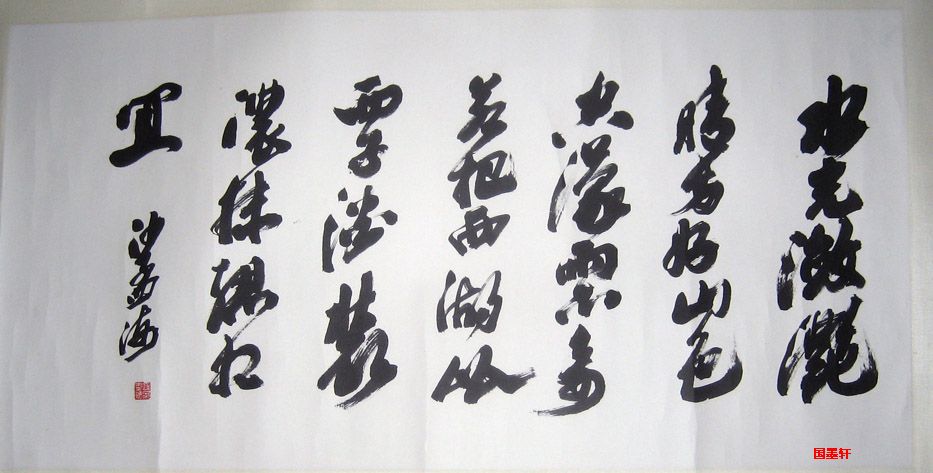 水光瀲灩
晴方好山色
空濛雨亦奇
若把西湖比
西子淡裝
濃抹總相
宜
沙孟海
国墨轩